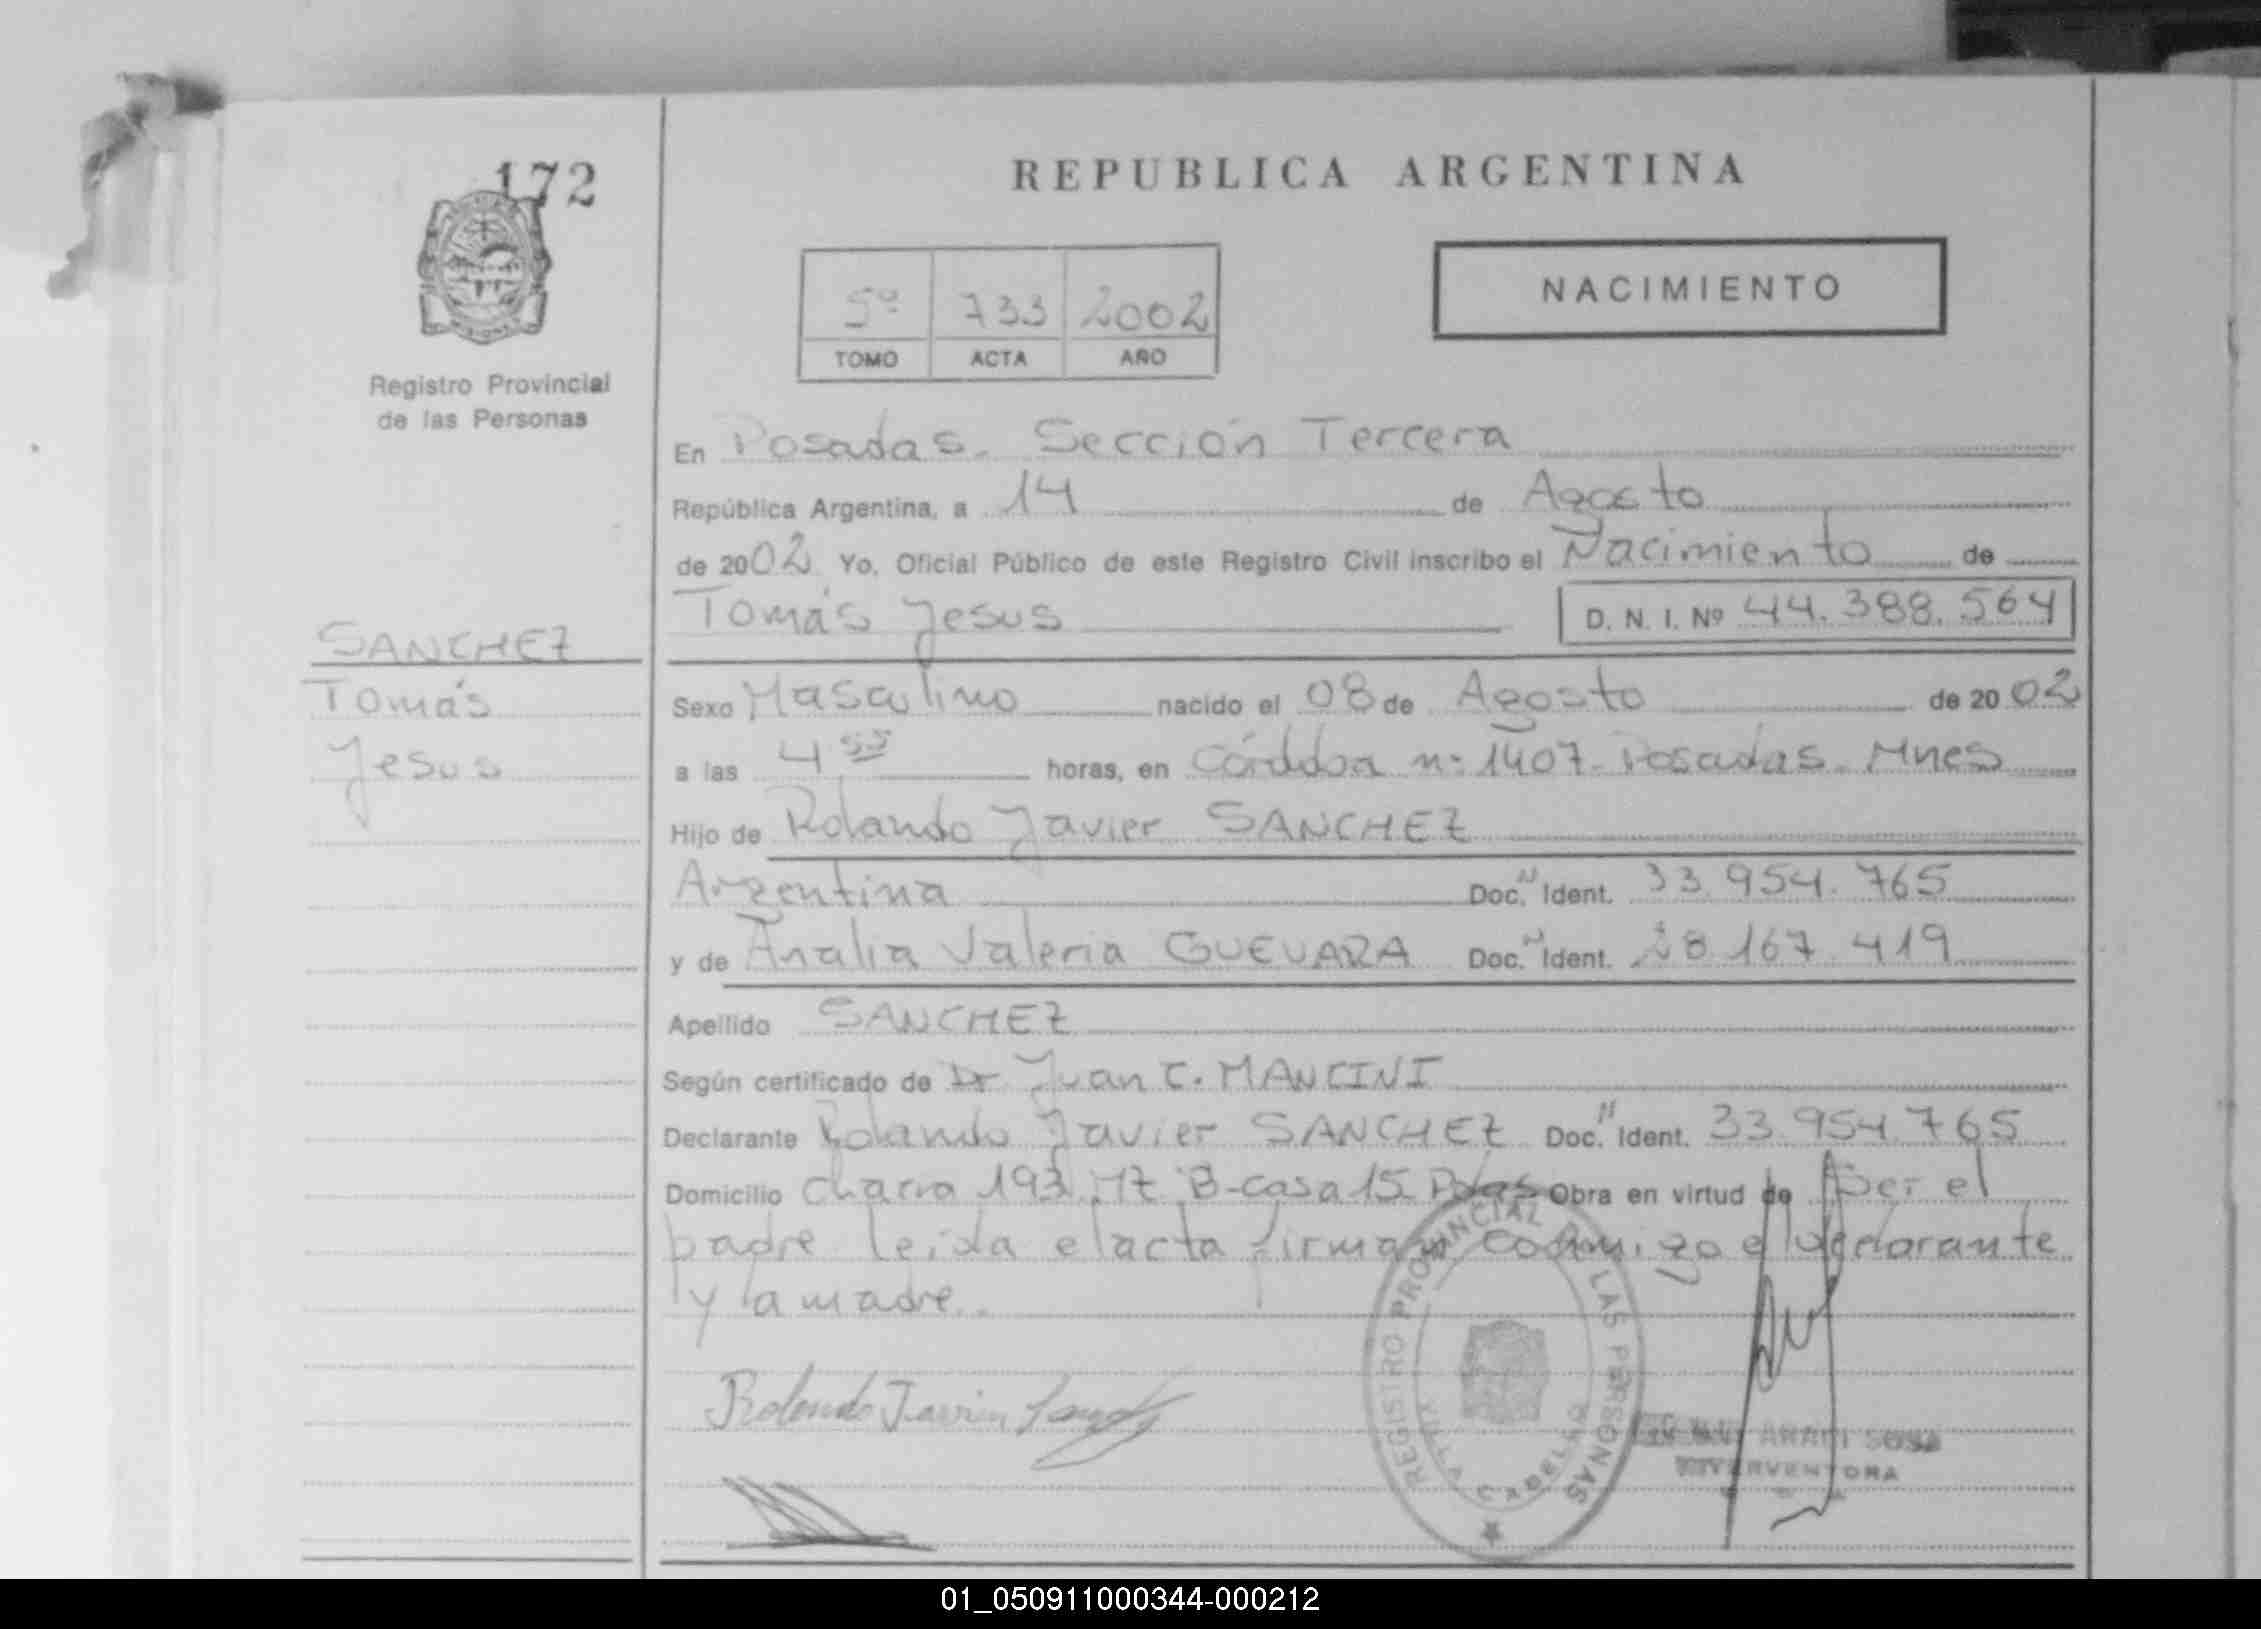 172
REPUBLICA ARGENTINA
NACIMIENTO
5º 733 2002
TOMO ACTA AÑO
Registro Provincial
de las Personas
En Posadas. Sección Tercera
República Argentina, a 14 de Agosto
de 2002 Yo, Oficial Público de este Registro Civil inscribo el Nacimiento de
Tomás Jesus D. N. I. Nº 44.388.564
SANCHEZ
Tomás
Jesus
Sexo Masculino nacido el 08 de Agosto de 2002
a las 4 55 horas, en Córdoba nº 1407. Posadas. Mnes
Hijo de Rolando Javier SANCHEZ
Argentina Doc. N Ident. 33.954.765
y de Analia Valeria GUEVARA Doc. N Ident. 28.167.419
Apellido SANCHEZ
Según certificado de Dr Juan C. MANCINI
Declarante Rolando Javier SANCHEZ Doc. N Ident. 33.954.765
Domicilio chacra 193 Mz B-casa 15 Pdas Obra en virtud de Ser el
padre leida el acta firman conmigo el declarante
y la madre.
Rolando Javier Sanchez
REGISTRO PROVINCIAL DE LAS PERSONAS
VILLA CABELLO
SOSA
INTERVENTORA
01_050911000344-000212